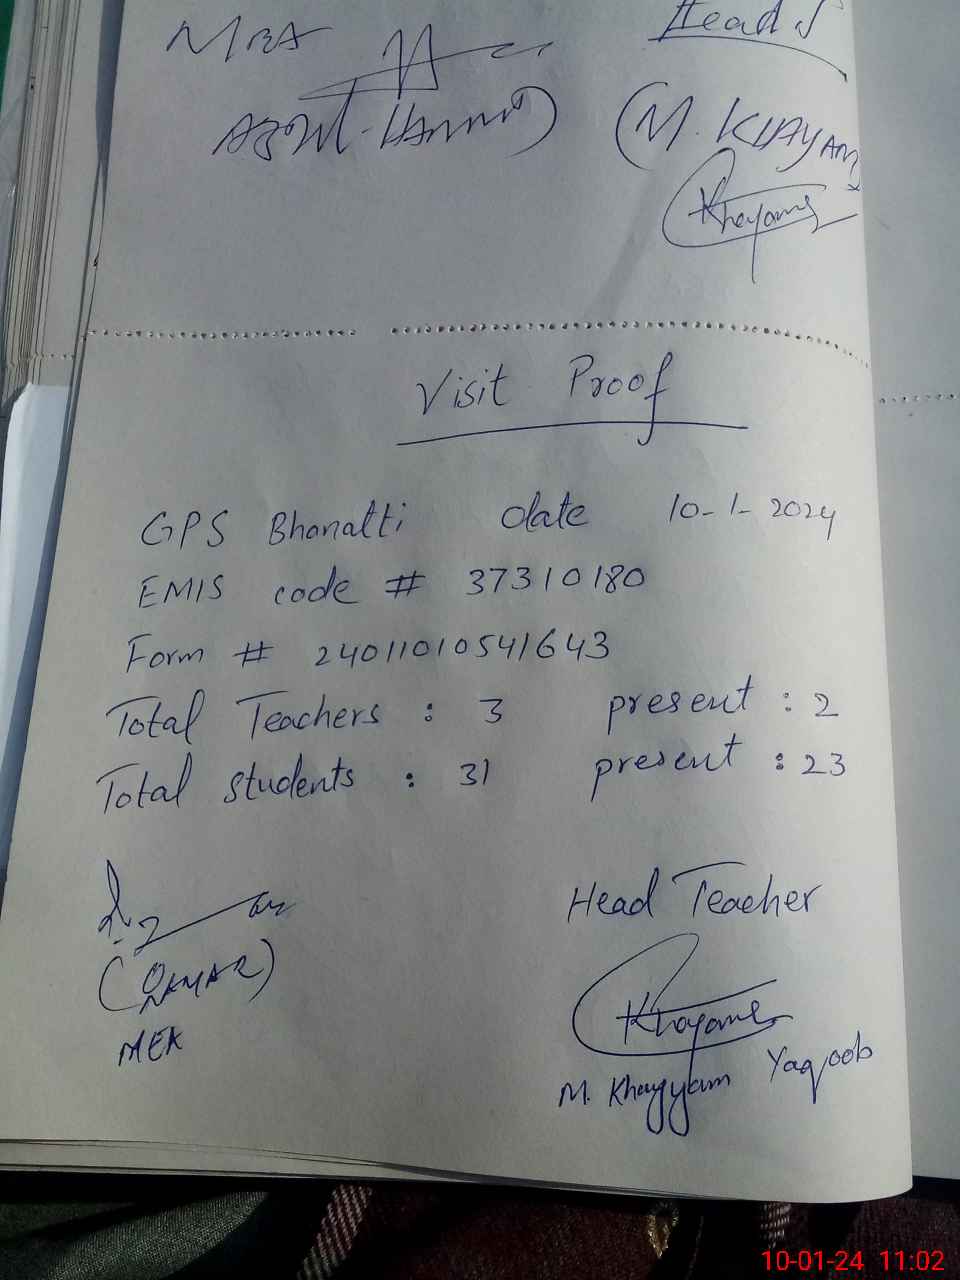 MEA
Head
(M. KHAYAM)
Khayam
Visit Proof
GPS Bhanatti date 10-1-2024
EMIS code # 37310180
Form # 24011010541643
Total Teachers : 3 present : 2
Total students : 31 present : 23
Head Teacher
(QAMAR)
MEA
Khayam
M. Khayyam Yaqoob
10-01-24 11:02